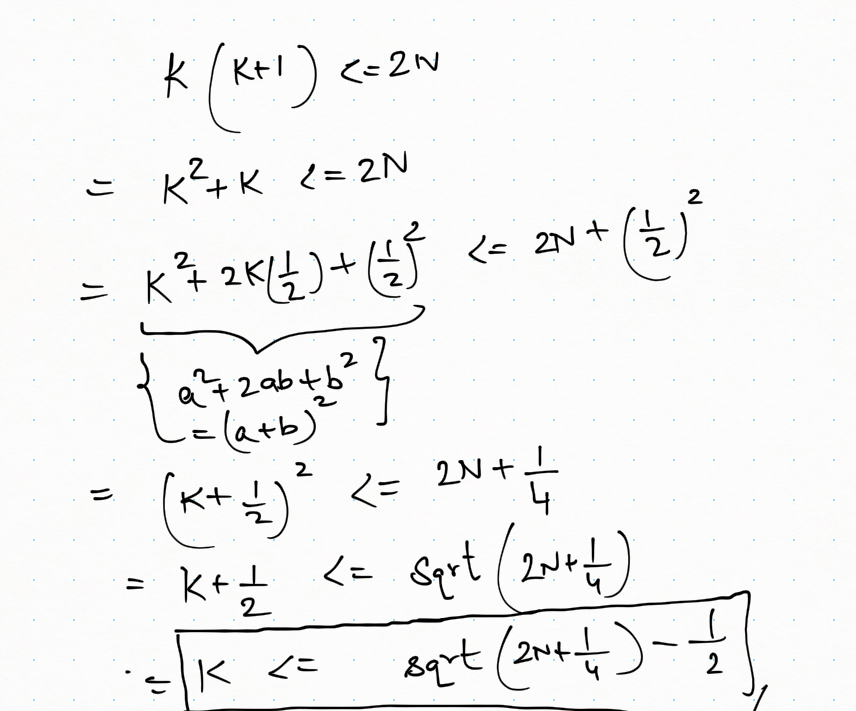 K (K+1) <= 2N
= K² + K <= 2N
= K² + 2K(1/2) + (1/2)² <= 2N + (1/2)²
{ a² + 2ab + b²
= (a+b)² }
= (K + 1/2)² <= 2N + 1/4
= K + 1/2 <= sqrt (2N + 1/4)
∴ = K <= sqrt (2N + 1/4) - 1/2